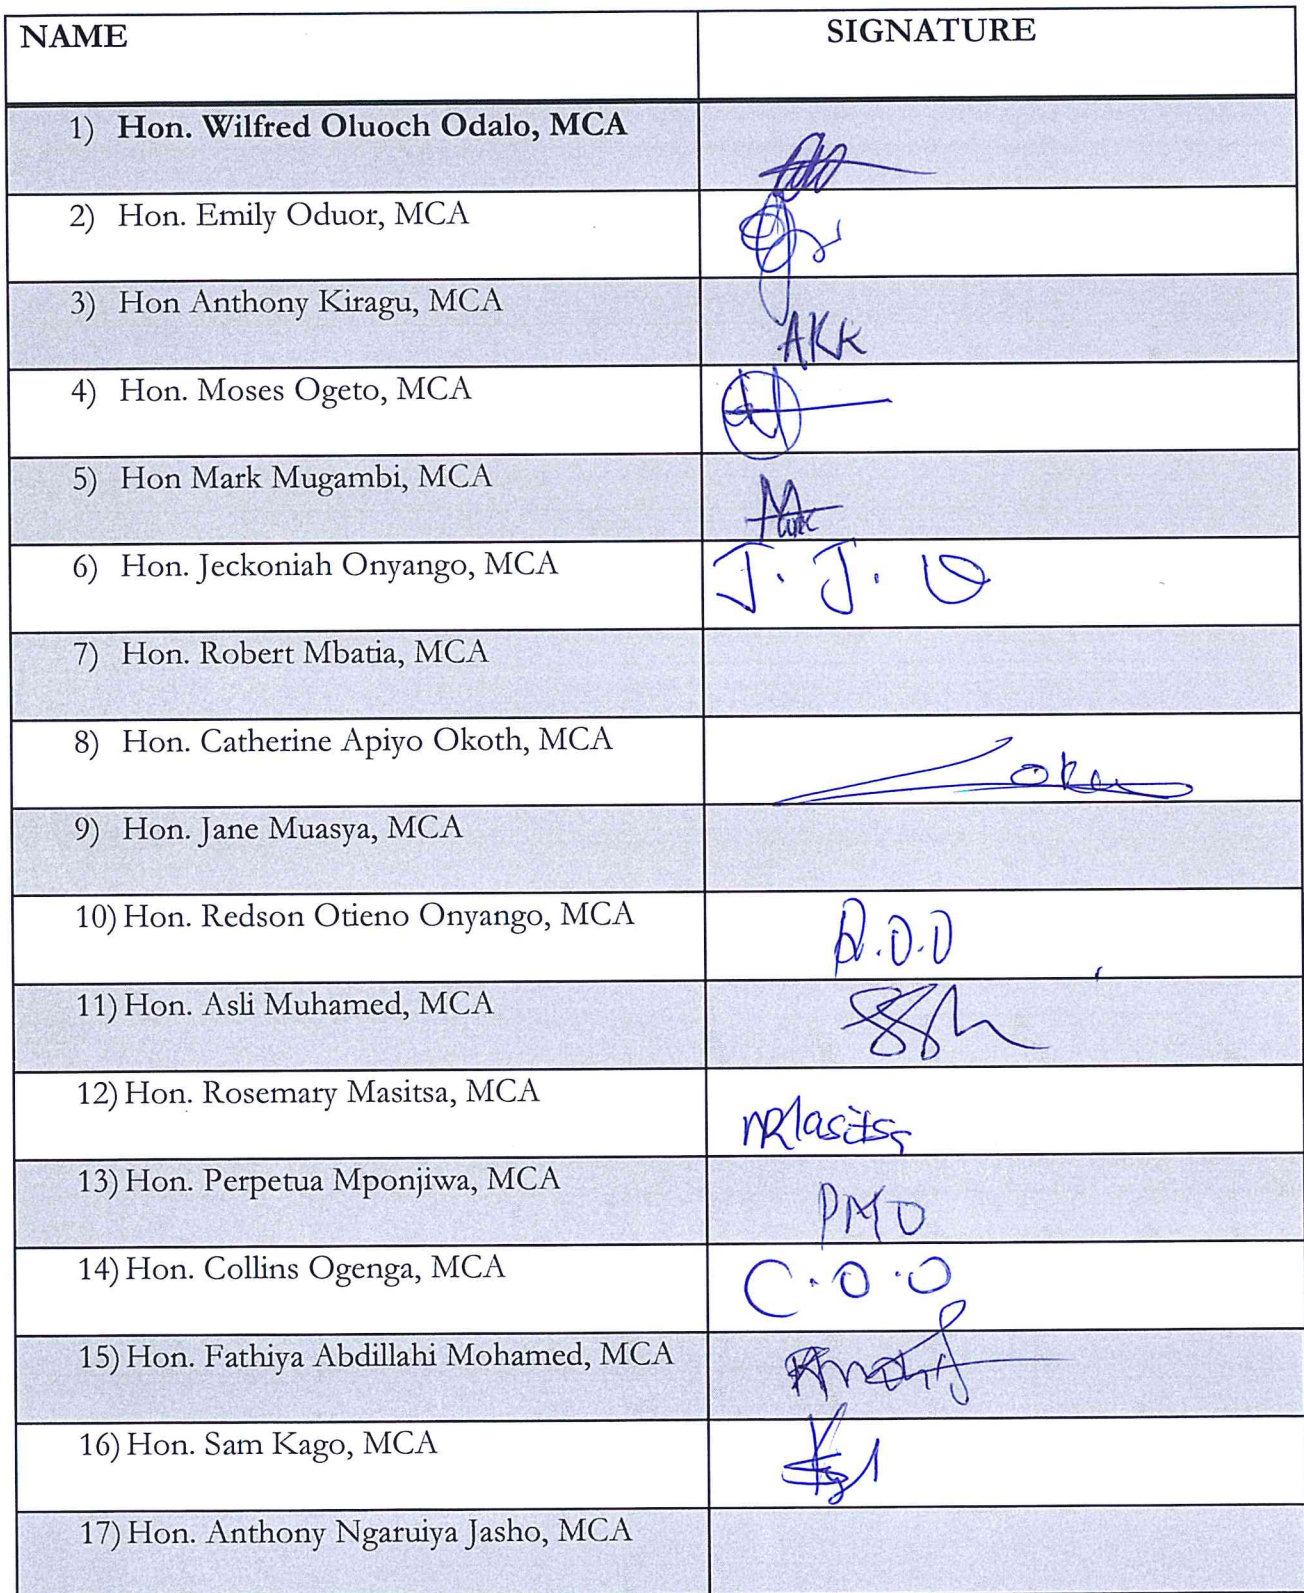 NAME SIGNATURE
1) Hon. Wilfred Oluoch Odalo, MCA
2) Hon. Emily Oduor, MCA
3) Hon Anthony Kiragu, MCA AKK
4) Hon. Moses Ogeto, MCA
5) Hon Mark Mugambi, MCA
6) Hon. Jeckoniah Onyango, MCA J. J. O
7) Hon. Robert Mbatia, MCA
8) Hon. Catherine Apiyo Okoth, MCA
9) Hon. Jane Muasya, MCA
10) Hon. Redson Otieno Onyango, MCA R.O.O
11) Hon. Asli Muhamed, MCA
12) Hon. Rosemary Masitsa, MCA
13) Hon. Perpetua Mponjiwa, MCA PMO
14) Hon. Collins Ogenga, MCA C.O.O
15) Hon. Fathiya Abdillahi Mohamed, MCA
16) Hon. Sam Kago, MCA
17) Hon. Anthony Ngaruiya Jasho, MCA